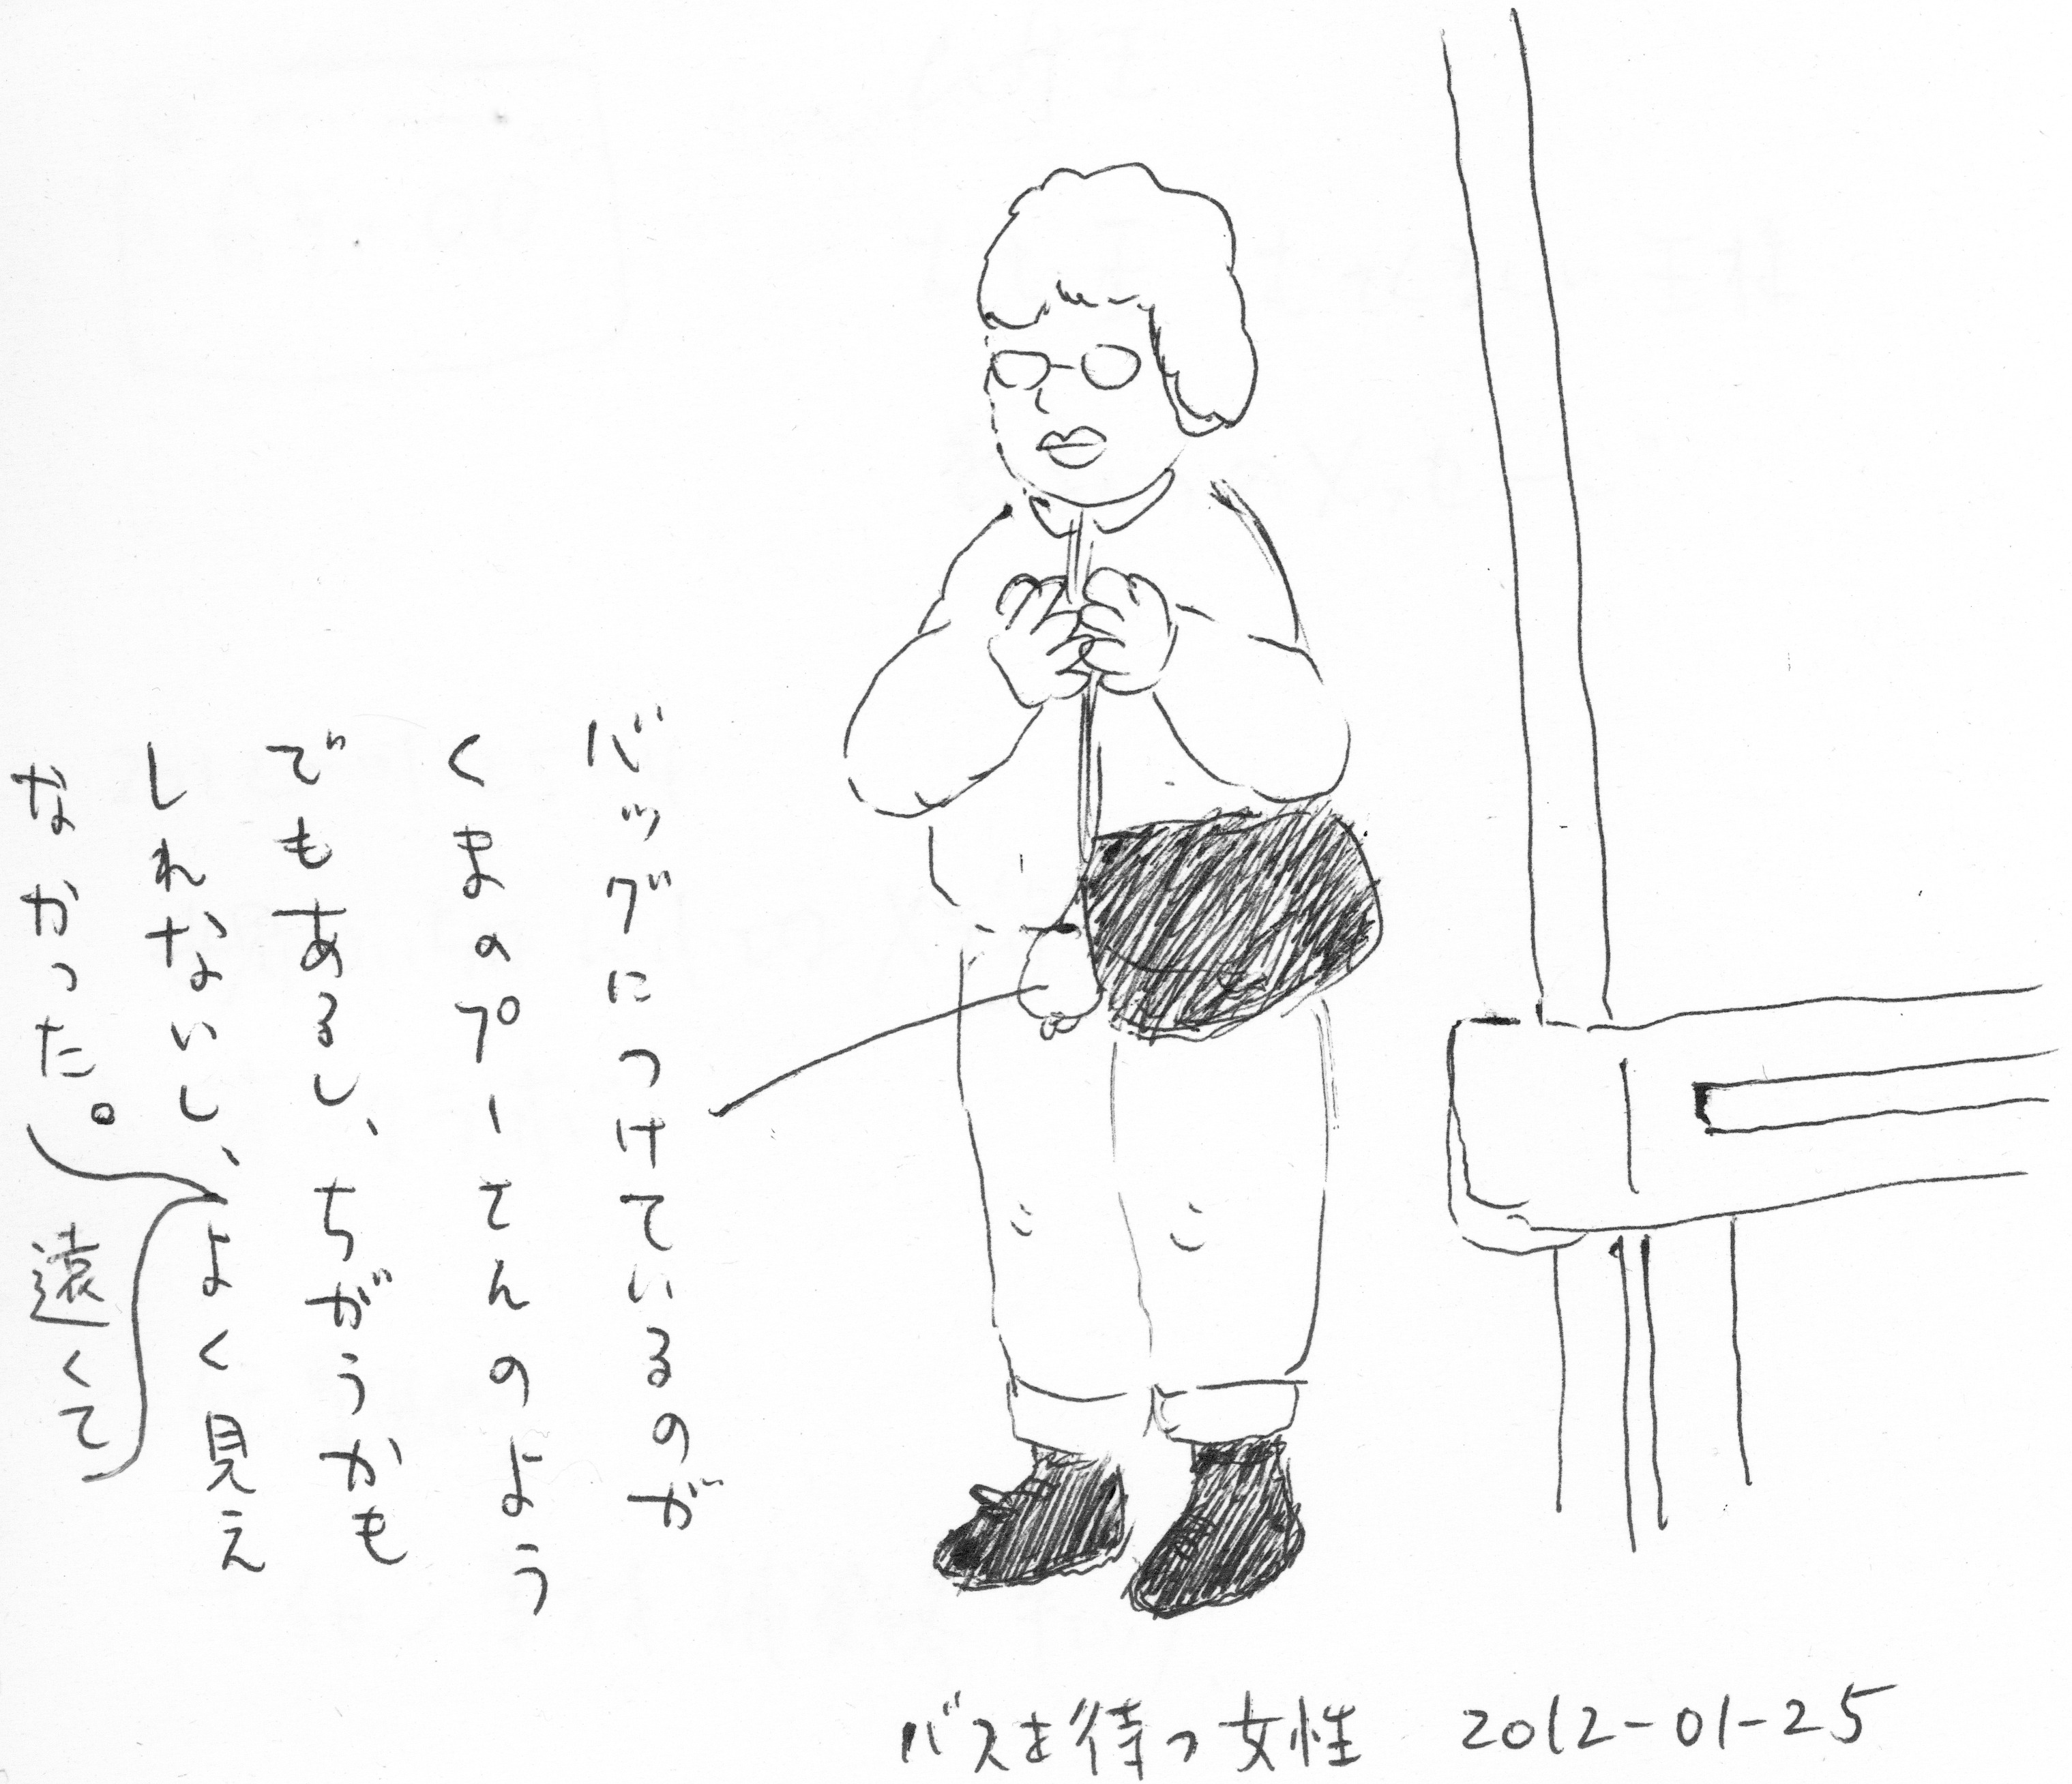 バッグにつけているのが
くまのプーてんのよう
でもあるし、ちがうかも
しれないし、よく見え
なかった。
遠くて
バスを待つ女性 2012-01-25